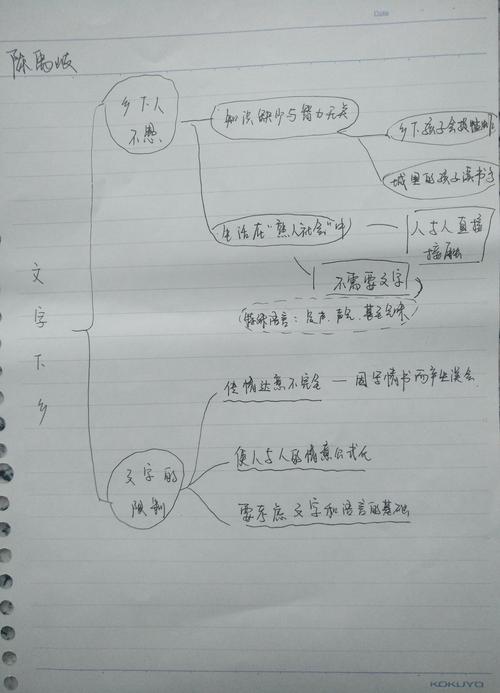 Date
陈禹岐
乡下人
不愚
知识缺少与智力无关
乡下孩子会捉蚱蜢
城里的孩子读书多
生活在“熟人社会”中
人与人直接
接触
不需要文字
(特殊语言：足声、声气、甚至气味)
文字下乡
传情达意不完全 — 因字情书而产生误会
文字的
限制
使人与人的情意公式化
要考虑文字和语言的基础
KOKUYO